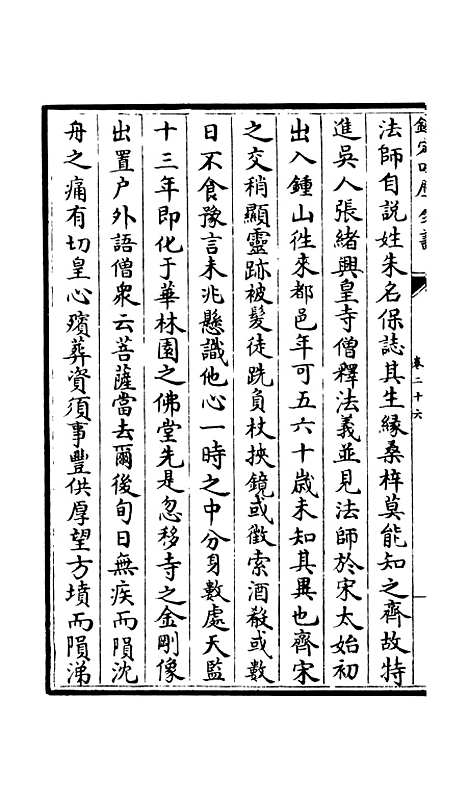 欽定四庫全書
卷二十六
法師自説姓朱名保誌其生緣桑梓莫能知之齊故特
進吳人張緒興皇寺僧釋法義並見法師於宋太始初
出入鍾山徃來都邑年可五六十歲未知其異也齊宋
之交稍顯靈跡被髮徒跣負杖挾鏡或徵索酒殽或數
日不食豫言未兆懸識他心一時之中分身數處天監
十三年即化于華林園之佛堂先是忽移寺之金剛像
出置户外語僧衆云菩薩當去爾後旬日無疾而隕沈
舟之痛有切皇心殯葬資須事豐供厚望方墳而隕涕